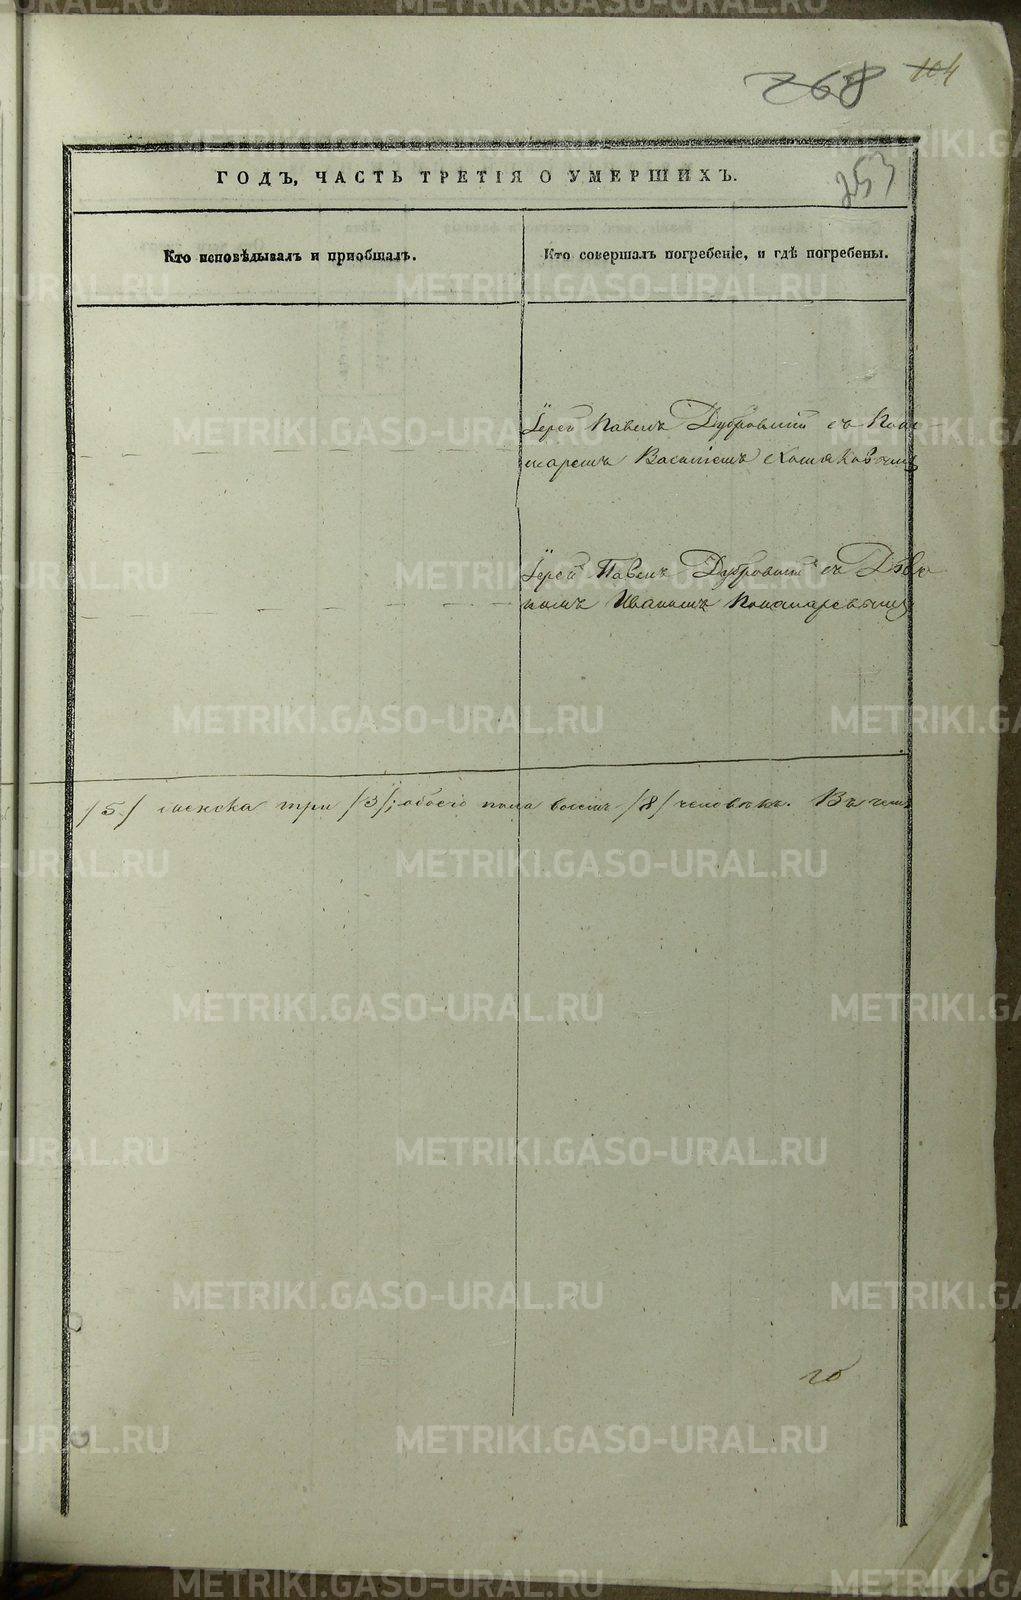 268 104
253
ГОДЪ, ЧАСТЬ ТРЕТІЯ О УМЕРШИХЪ.
Кто исповѣдывалъ и пріобщалъ.
Кто совершалъ погребеніе, и гдѣ погребены.
Іерей Павелъ Дубровскій съ Поно-
маремъ Василіемъ Хомяковымъ
Іерей Павелъ Дубровскій съ Дьяч-
комъ Иваномъ Пономаревымъ
/5/ женска три /3/, обоего пола восемь /8/ человѣкъ. Въ чемъ
го
METRIKI.GASO-URAL.RU